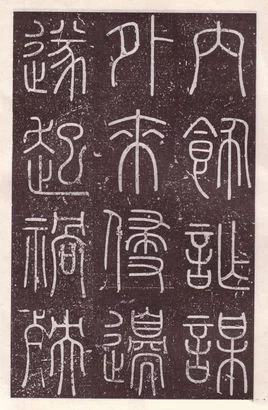 内飾詐謀
外來侵邊
遂起禍殃